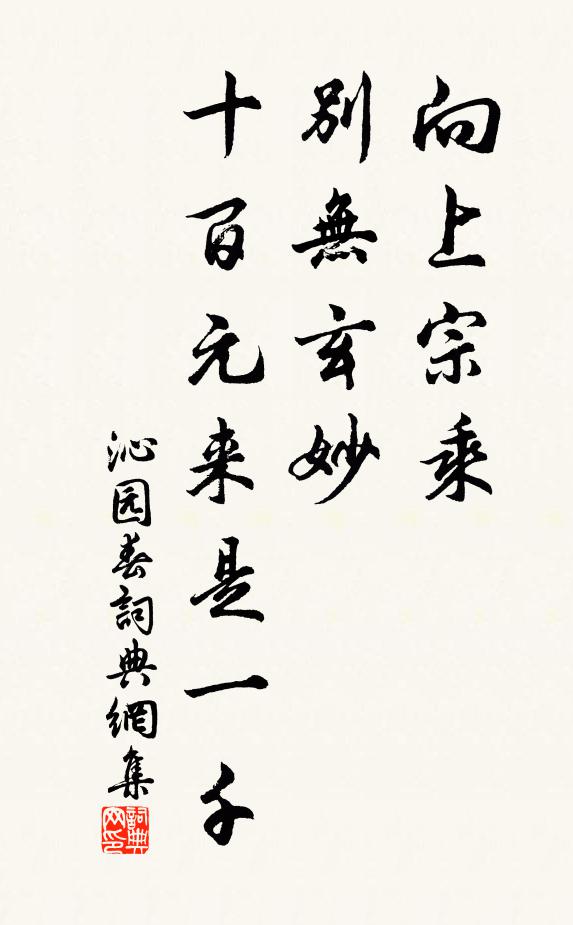 向上宗乘
別無玄妙
十百元来是一千
沁园春詞典網集
詞典网印